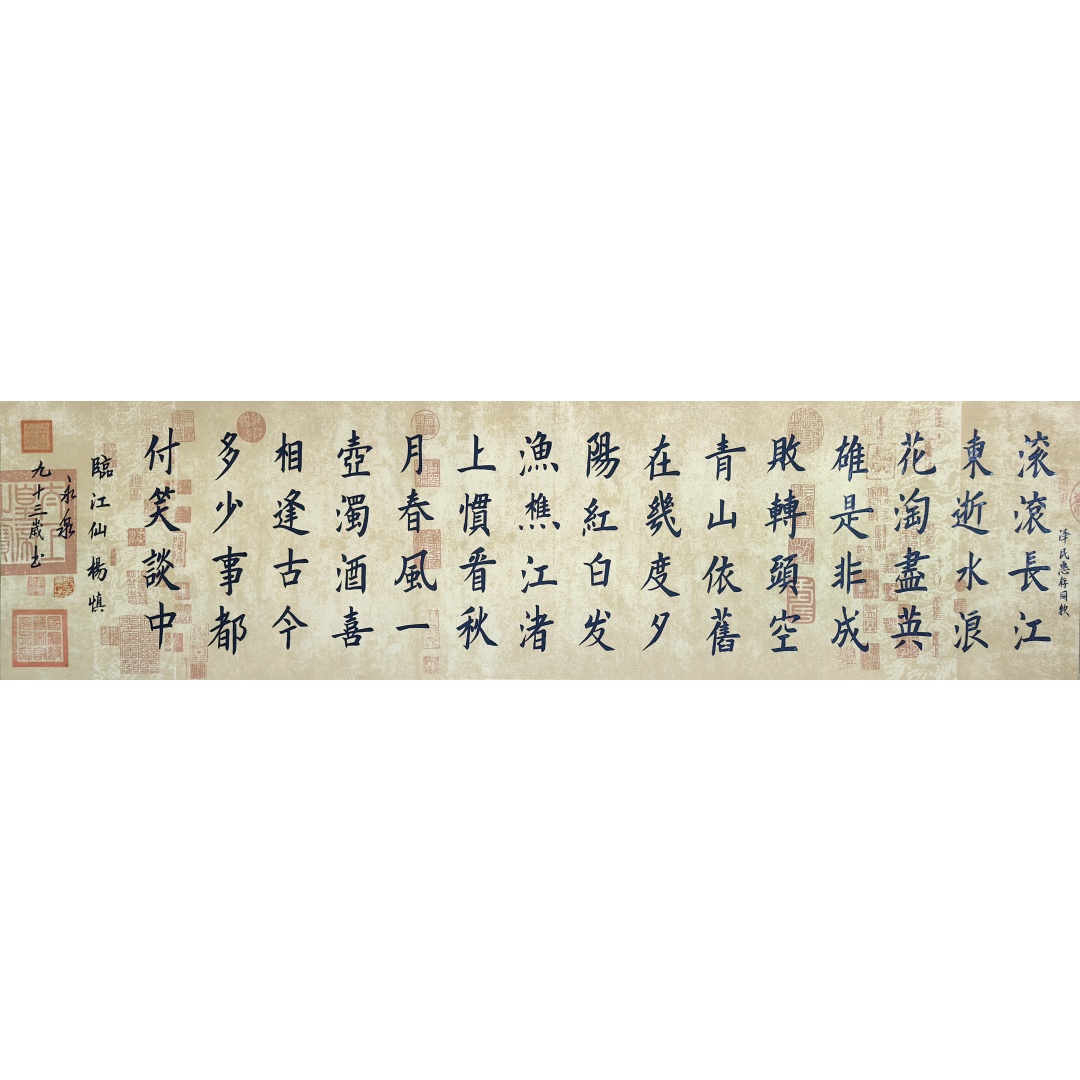 泽民惠存同牧
滚滚長江
東逝水浪
花淘盡英
雄是非成
敗轉頭空
青山依舊
在幾度夕
陽紅白发
漁樵江渚
上慣看秋
月春風一
壺濁酒喜
相逢古今
多少事都
付笑談中
臨江仙楊慎
永泉
九十三歲书